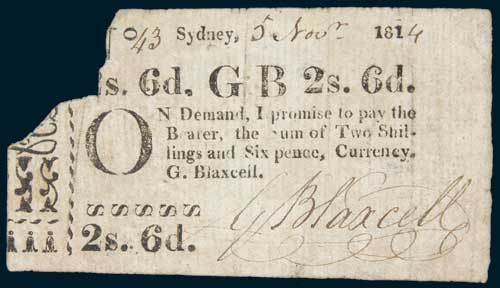 No 43 Sydney, 5 Novr 1814
s. 6d. G B 2s. 6d.
ON Demand, I promise to pay the
Bearer, the sum of Two Shil-
lings and Six pence, Currency.
G. Blaxcell.
G Blaxcell
2s. 6d.